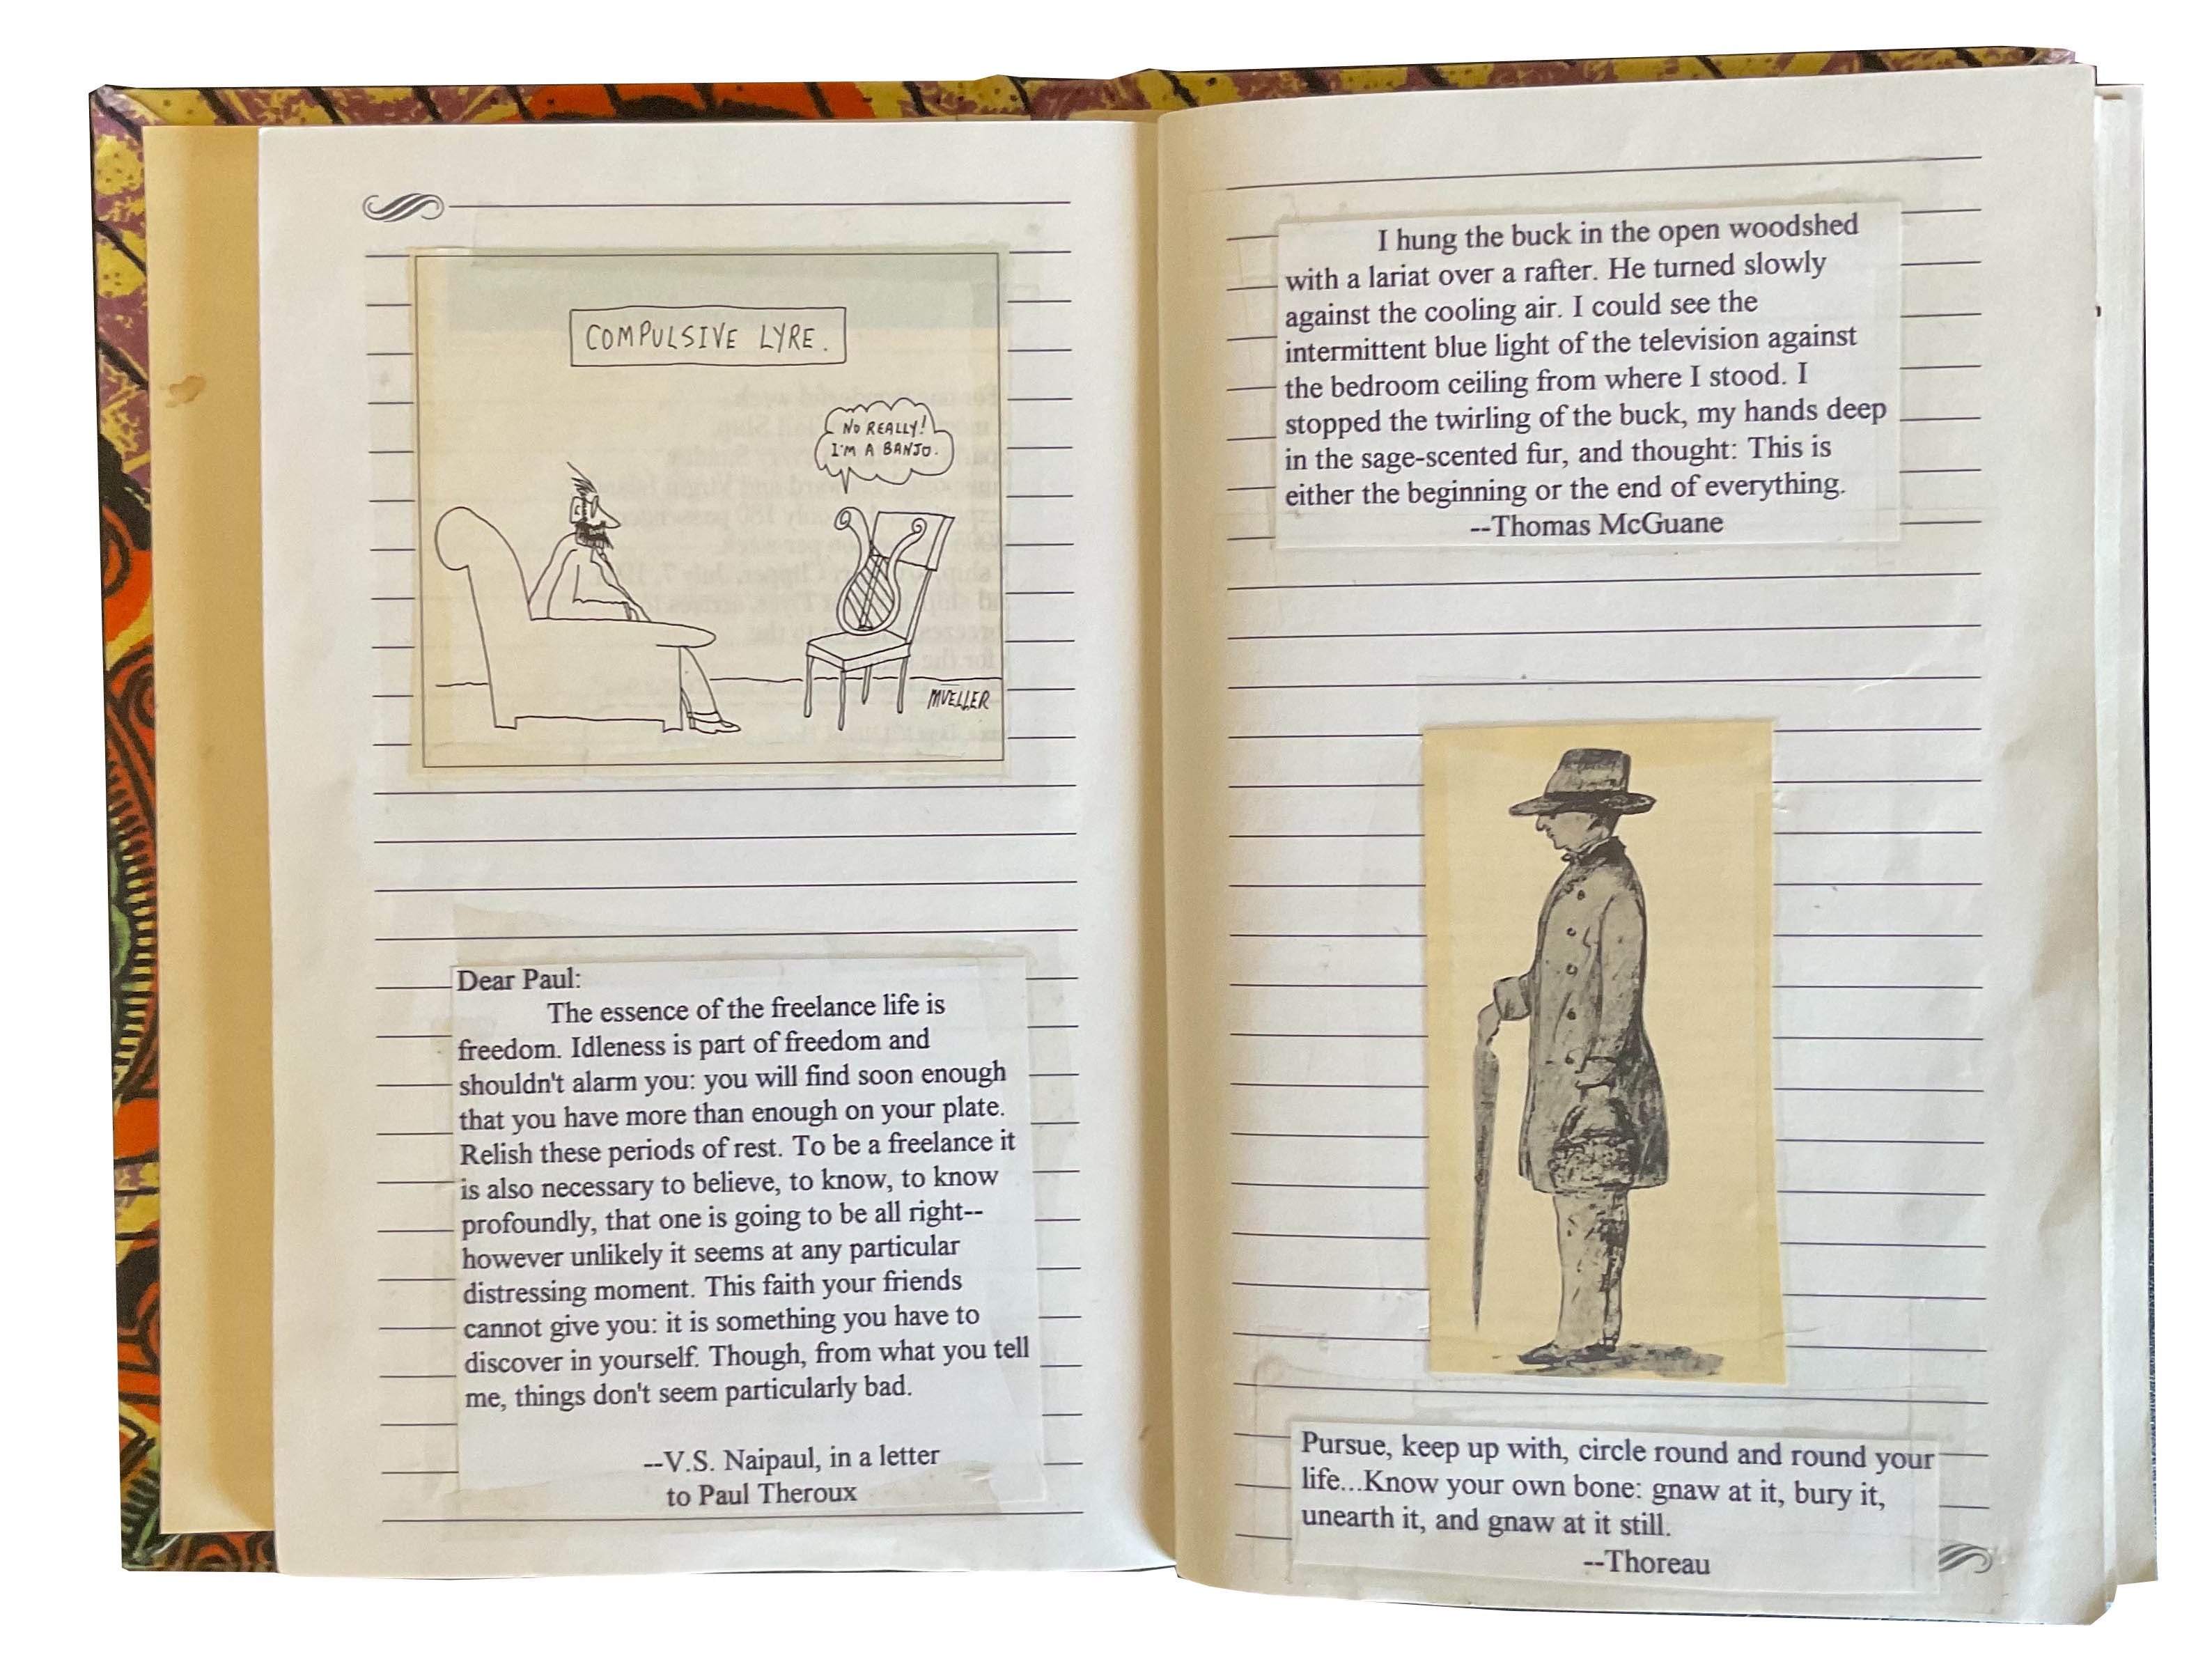 COMPULSIVE LYRE.
NO REALLY!
I'M A BANJO.
MUELLER
Dear Paul:
The essence of the freelance life is
freedom. Idleness is part of freedom and
shouldn't alarm you: you will find soon enough
that you have more than enough on your plate.
Relish these periods of rest. To be a freelance it
is also necessary to believe, to know, to know
profoundly, that one is going to be all right--
however unlikely it seems at any particular
distressing moment. This faith your friends
cannot give you: it is something you have to
discover in yourself. Though, from what you tell
me, things don't seem particularly bad.
--V.S. Naipaul, in a letter
to Paul Theroux
I hung the buck in the open woodshed
with a lariat over a rafter. He turned slowly
against the cooling air. I could see the
intermittent blue light of the television against
the bedroom ceiling from where I stood. I
stopped the twirling of the buck, my hands deep
in the sage-scented fur, and thought: This is
either the beginning or the end of everything.
--Thomas McGuane
Pursue, keep up with, circle round and round your
life...Know your own bone: gnaw at it, bury it,
unearth it, and gnaw at it still.
--Thoreau